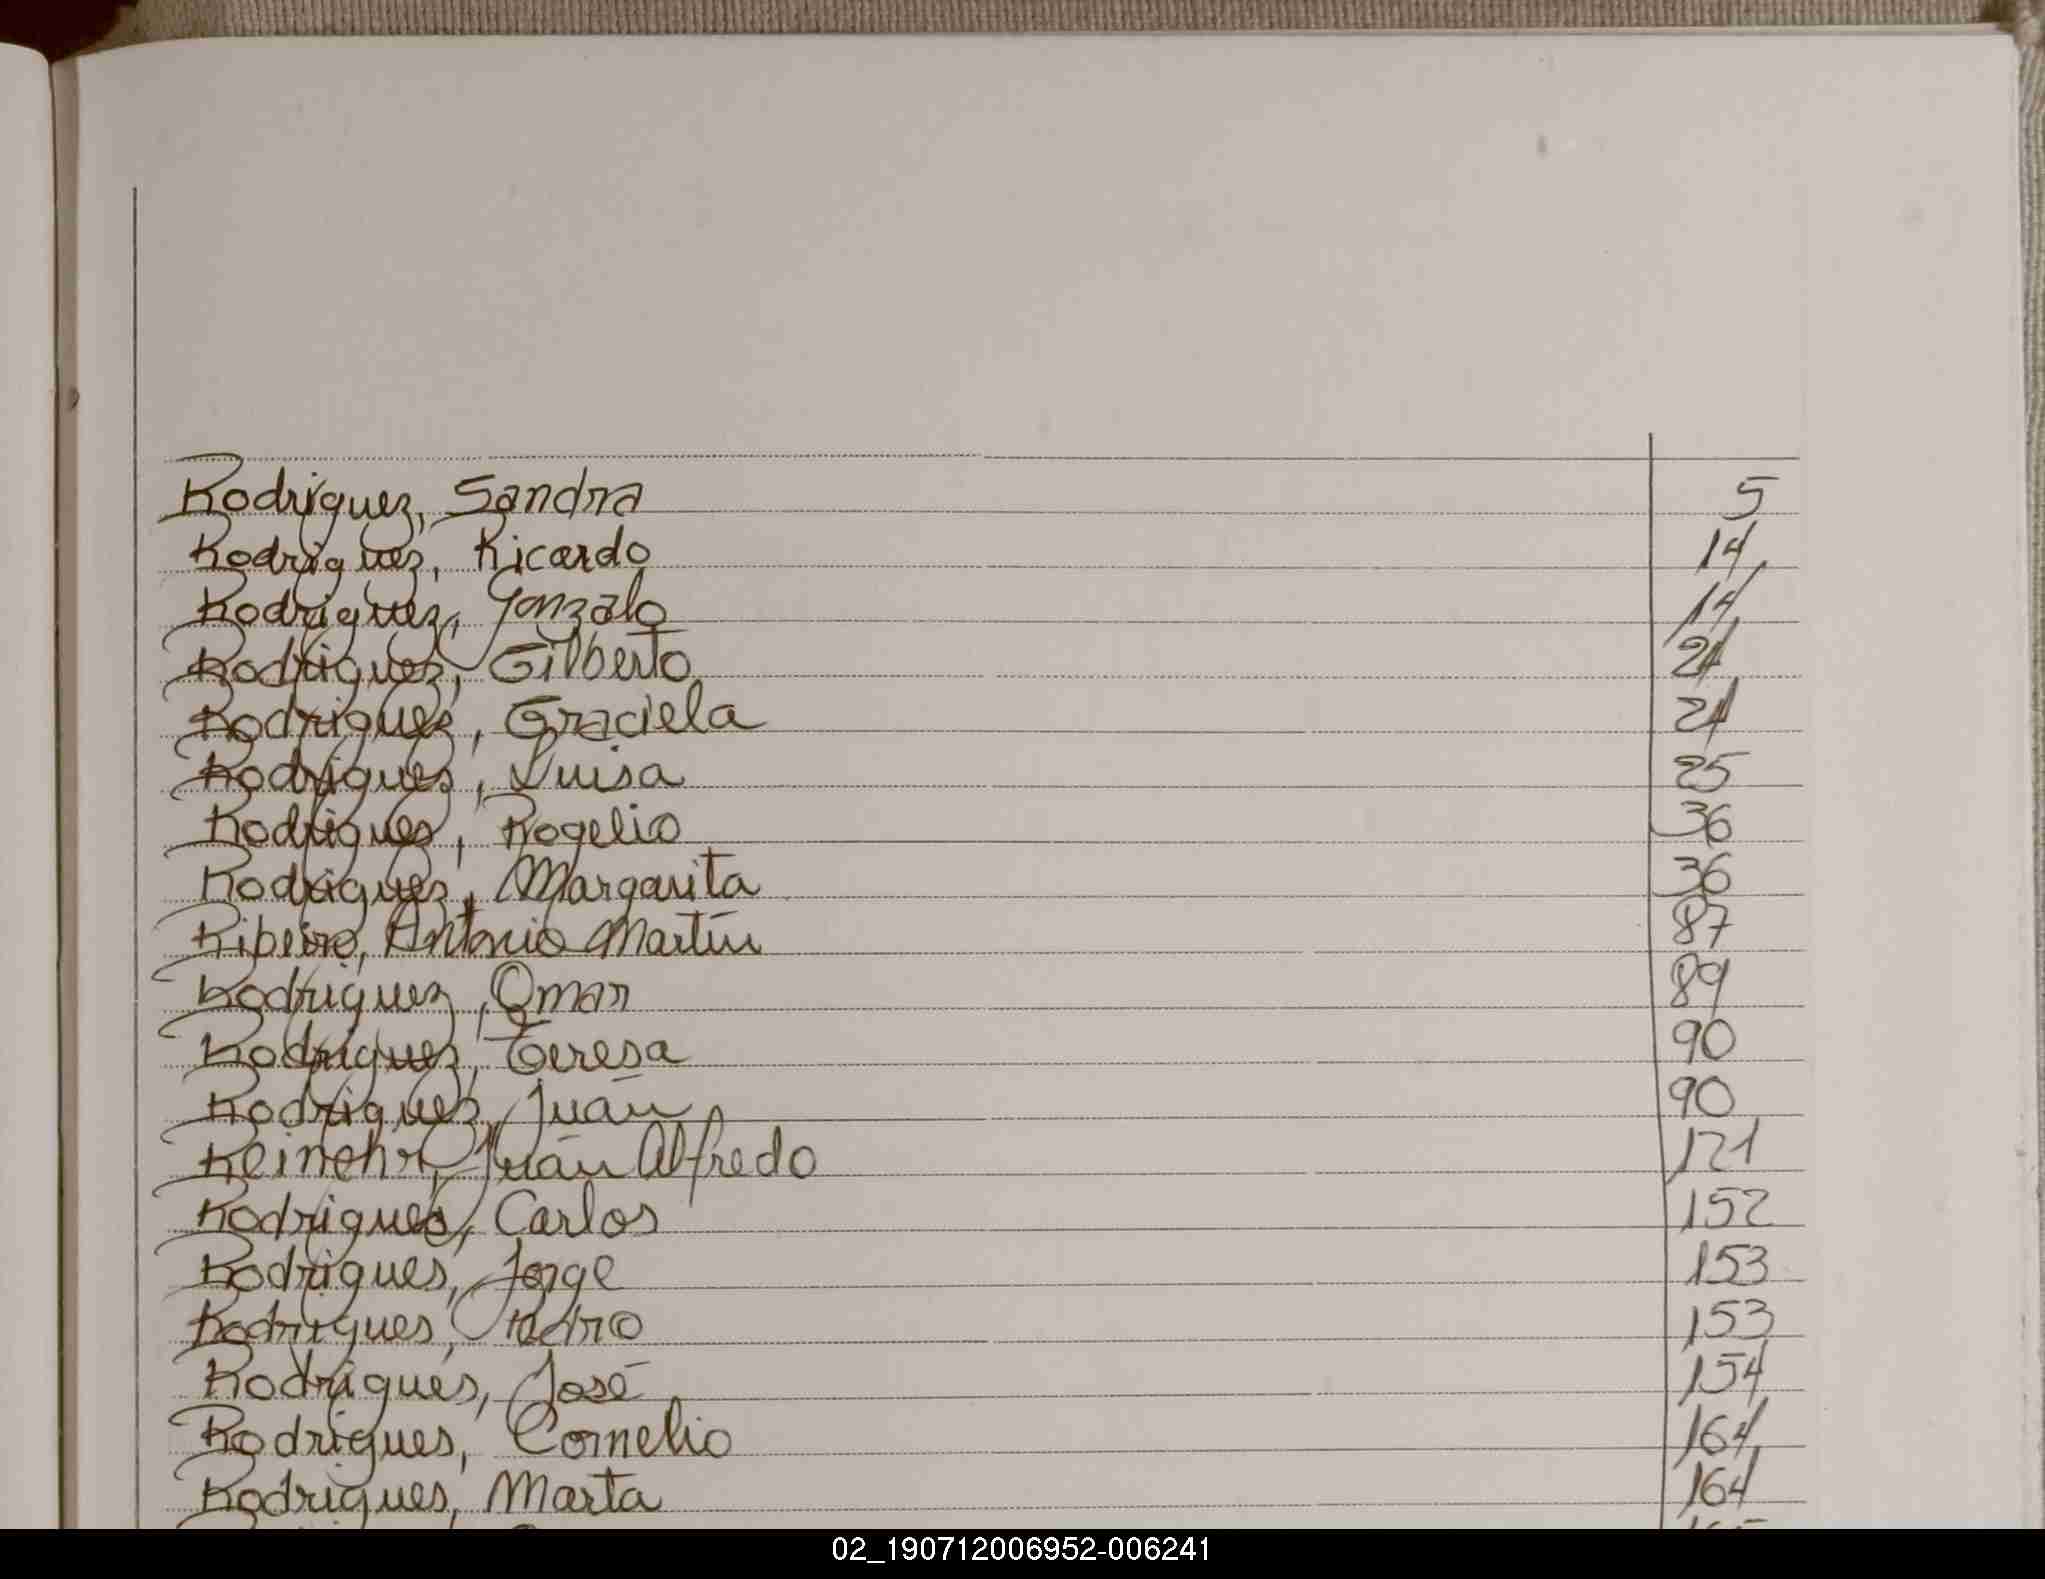 Rodriguez, Sandra 5
Rodriguez, Ricardo 14
Rodriguez, Gonzalo 14
Rodriguez, Gilberto 24
Rodriguez, Graciela 24
Rodrigues, Luisa 25
Rodrigues, Rogelio 36
Rodriguez, Margarita 36
Ribeiro, Antonio Martín 87
Rodriguez, Omar 89
Rodriguez, Teresa 90
Rodriguez, Juan 90
Reinehr, Juan Alfredo 121
Rodrigues, Carlos 152
Rodrigues, Jorge 153
Rodrigues, Pedro 153
Rodrigues, José 154
Rodrigues, Cornelio 164
Rodrigues, Marta 164
02_190712006952-006241